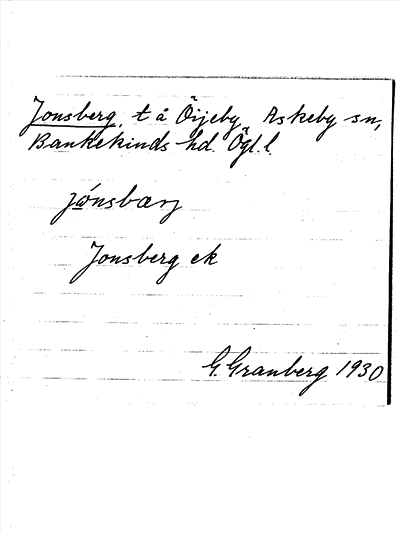 Jonsberg, t å Öijeby, Askeby sn,
Bankekinds hd. Ögl. l.
jónsbærj
Jonsberg ek
G. Granberg 1930